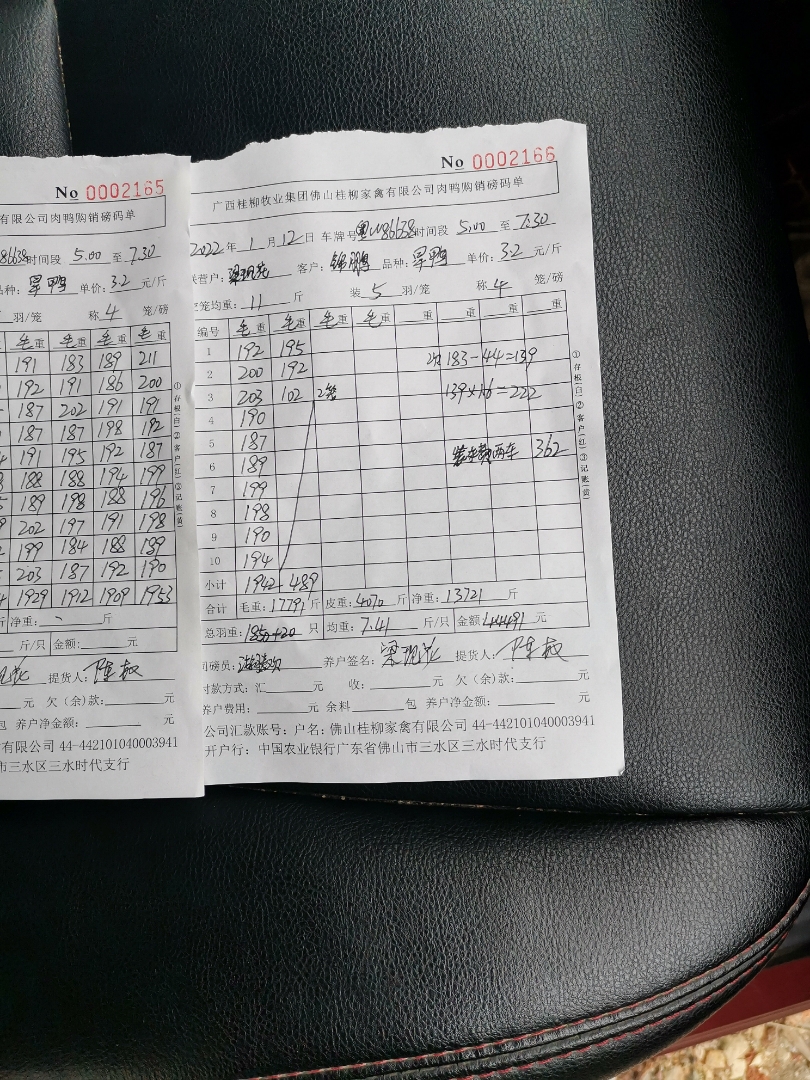 No 0002165
有限公司肉鸭购销磅码单
时间段 5.00 至 7.30
品种: 旱鸭 单价: 3.2 元/斤
羽/笼 称 4 笼/磅
毛重 毛重 毛重 毛重
191 183 189 211
192 191 186 200
187 202 191 191
187 187 198 192
191 195 192 187
188 188 194 199
189 198 188 196
202 197 191 198
199 184 188 189
203 187 192 190
1929 1912 1909 1953
斤 净重: 斤
斤/只 金额: 元
提货人:
元 欠(余)款: 元
元
包 养户净金额: 元
有限公司 44-442101040003941
市三水区三水时代支行
①存根(白)②客户(红)③记账(黄)
No 0002166
广西桂柳牧业集团佛山桂柳家禽有限公司肉鸭购销磅码单
2022 年 1 月 12 日 车牌号 粤W86638 时间段 5.00 至 7:30
营户: 客户: 锦鹏 品种: 旱鸭 单价: 3.2 元/斤
笼均重: 11 斤 装 5 羽/笼 称 4 笼/磅
编号 毛重 毛重 毛重 毛重 重 重 重 重
1 192 195 183-44=139
2 200 192
3 203 102 2笼 139×1.6=222
4 190
5 187 两车 362
6 189
7 199
8 198
9 190
10 194
小计 1942 489
合计 毛重: 17791 斤 皮重: 4070 斤 净重: 13721 斤
总羽重: 1850+20 只 均重: 7.41 斤/只 金额 44491 元
司磅员: 养户签名: 提货人:
付款方式: 汇 元 收: 元 欠(余)款: 元
养户费用: 元 余料 包 养户净金额: 元
公司汇款账号: 户名: 佛山桂柳家禽有限公司 44-442101040003941
开户行: 中国农业银行广东省佛山市三水区三水时代支行
①存根(白)②客户(红)③记账(黄)